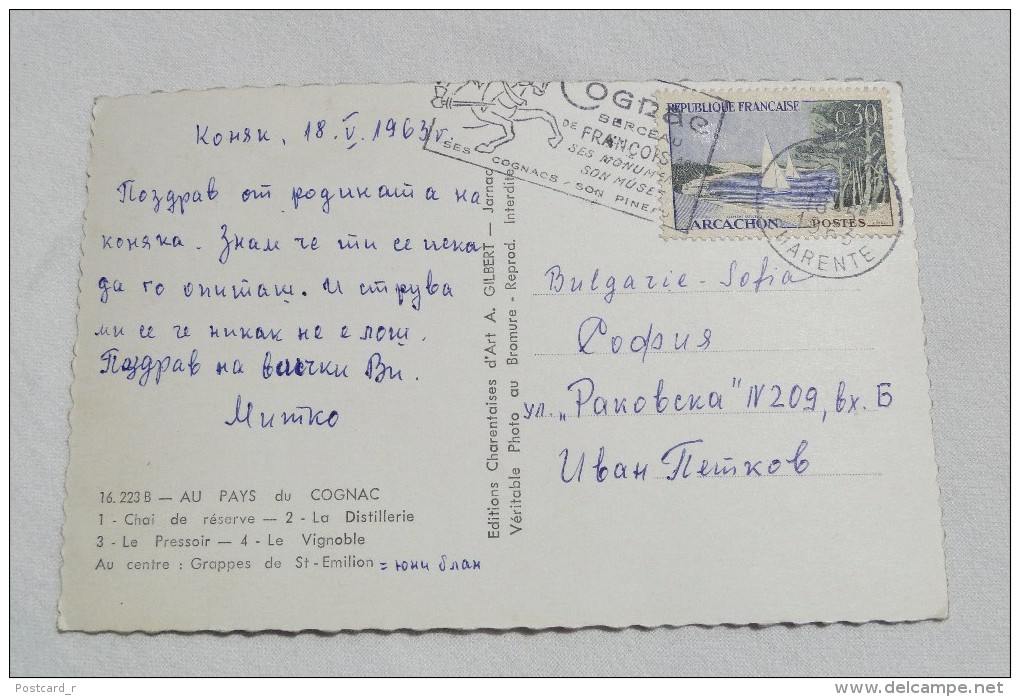 Коняк, 18.V.1963 г.
Поздрав от родината на
коняка. Знам че ти се иска
да го опиташ. И струва
ми се че никак не е лош.
Поздрав на всички Ви.
Митко
16.223 B — AU PAYS du COGNAC
1 - Chai de réserve — 2 - La Distillerie
3 - Le Pressoir — 4 - Le Vignoble
Au centre : Grappes de St-Emilion = юни блан
Editions Charentaises d'Art A. GILBERT — Jarnac
Véritable Photo au Bromure - Reprod. Interdite
COGNAC
BERCEAU
DE FRANÇOIS
SES MONUM
SON MUSE
SES COGNACS / SON PINE
REPUBLIQUE FRANÇAISE
0,30
ARCACHON POSTES
1963
ARENTE
Bulgarie - Sofia
София
ул. „Раковска" № 209, вх. Б
Иван Петков
Postcard_r
delcampe.net